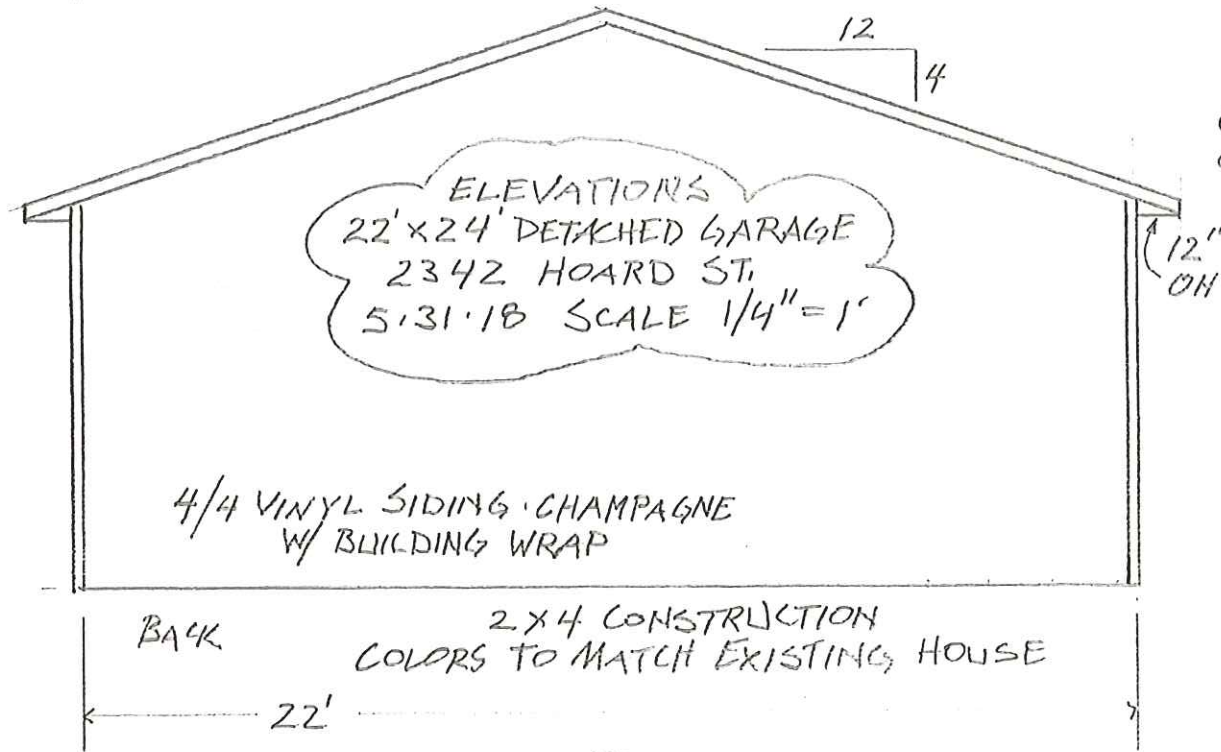 12
4
ELEVATIONS
22'x24' DETACHED GARAGE
2342 HOARD ST.
5.31.18 SCALE 1/4" = 1'
12"
OH
4/4 VINYL SIDING · CHAMPAGNE
W/ BUILDING WRAP
BACK
2x4 CONSTRUCTION
COLORS TO MATCH EXISTING HOUSE
22'